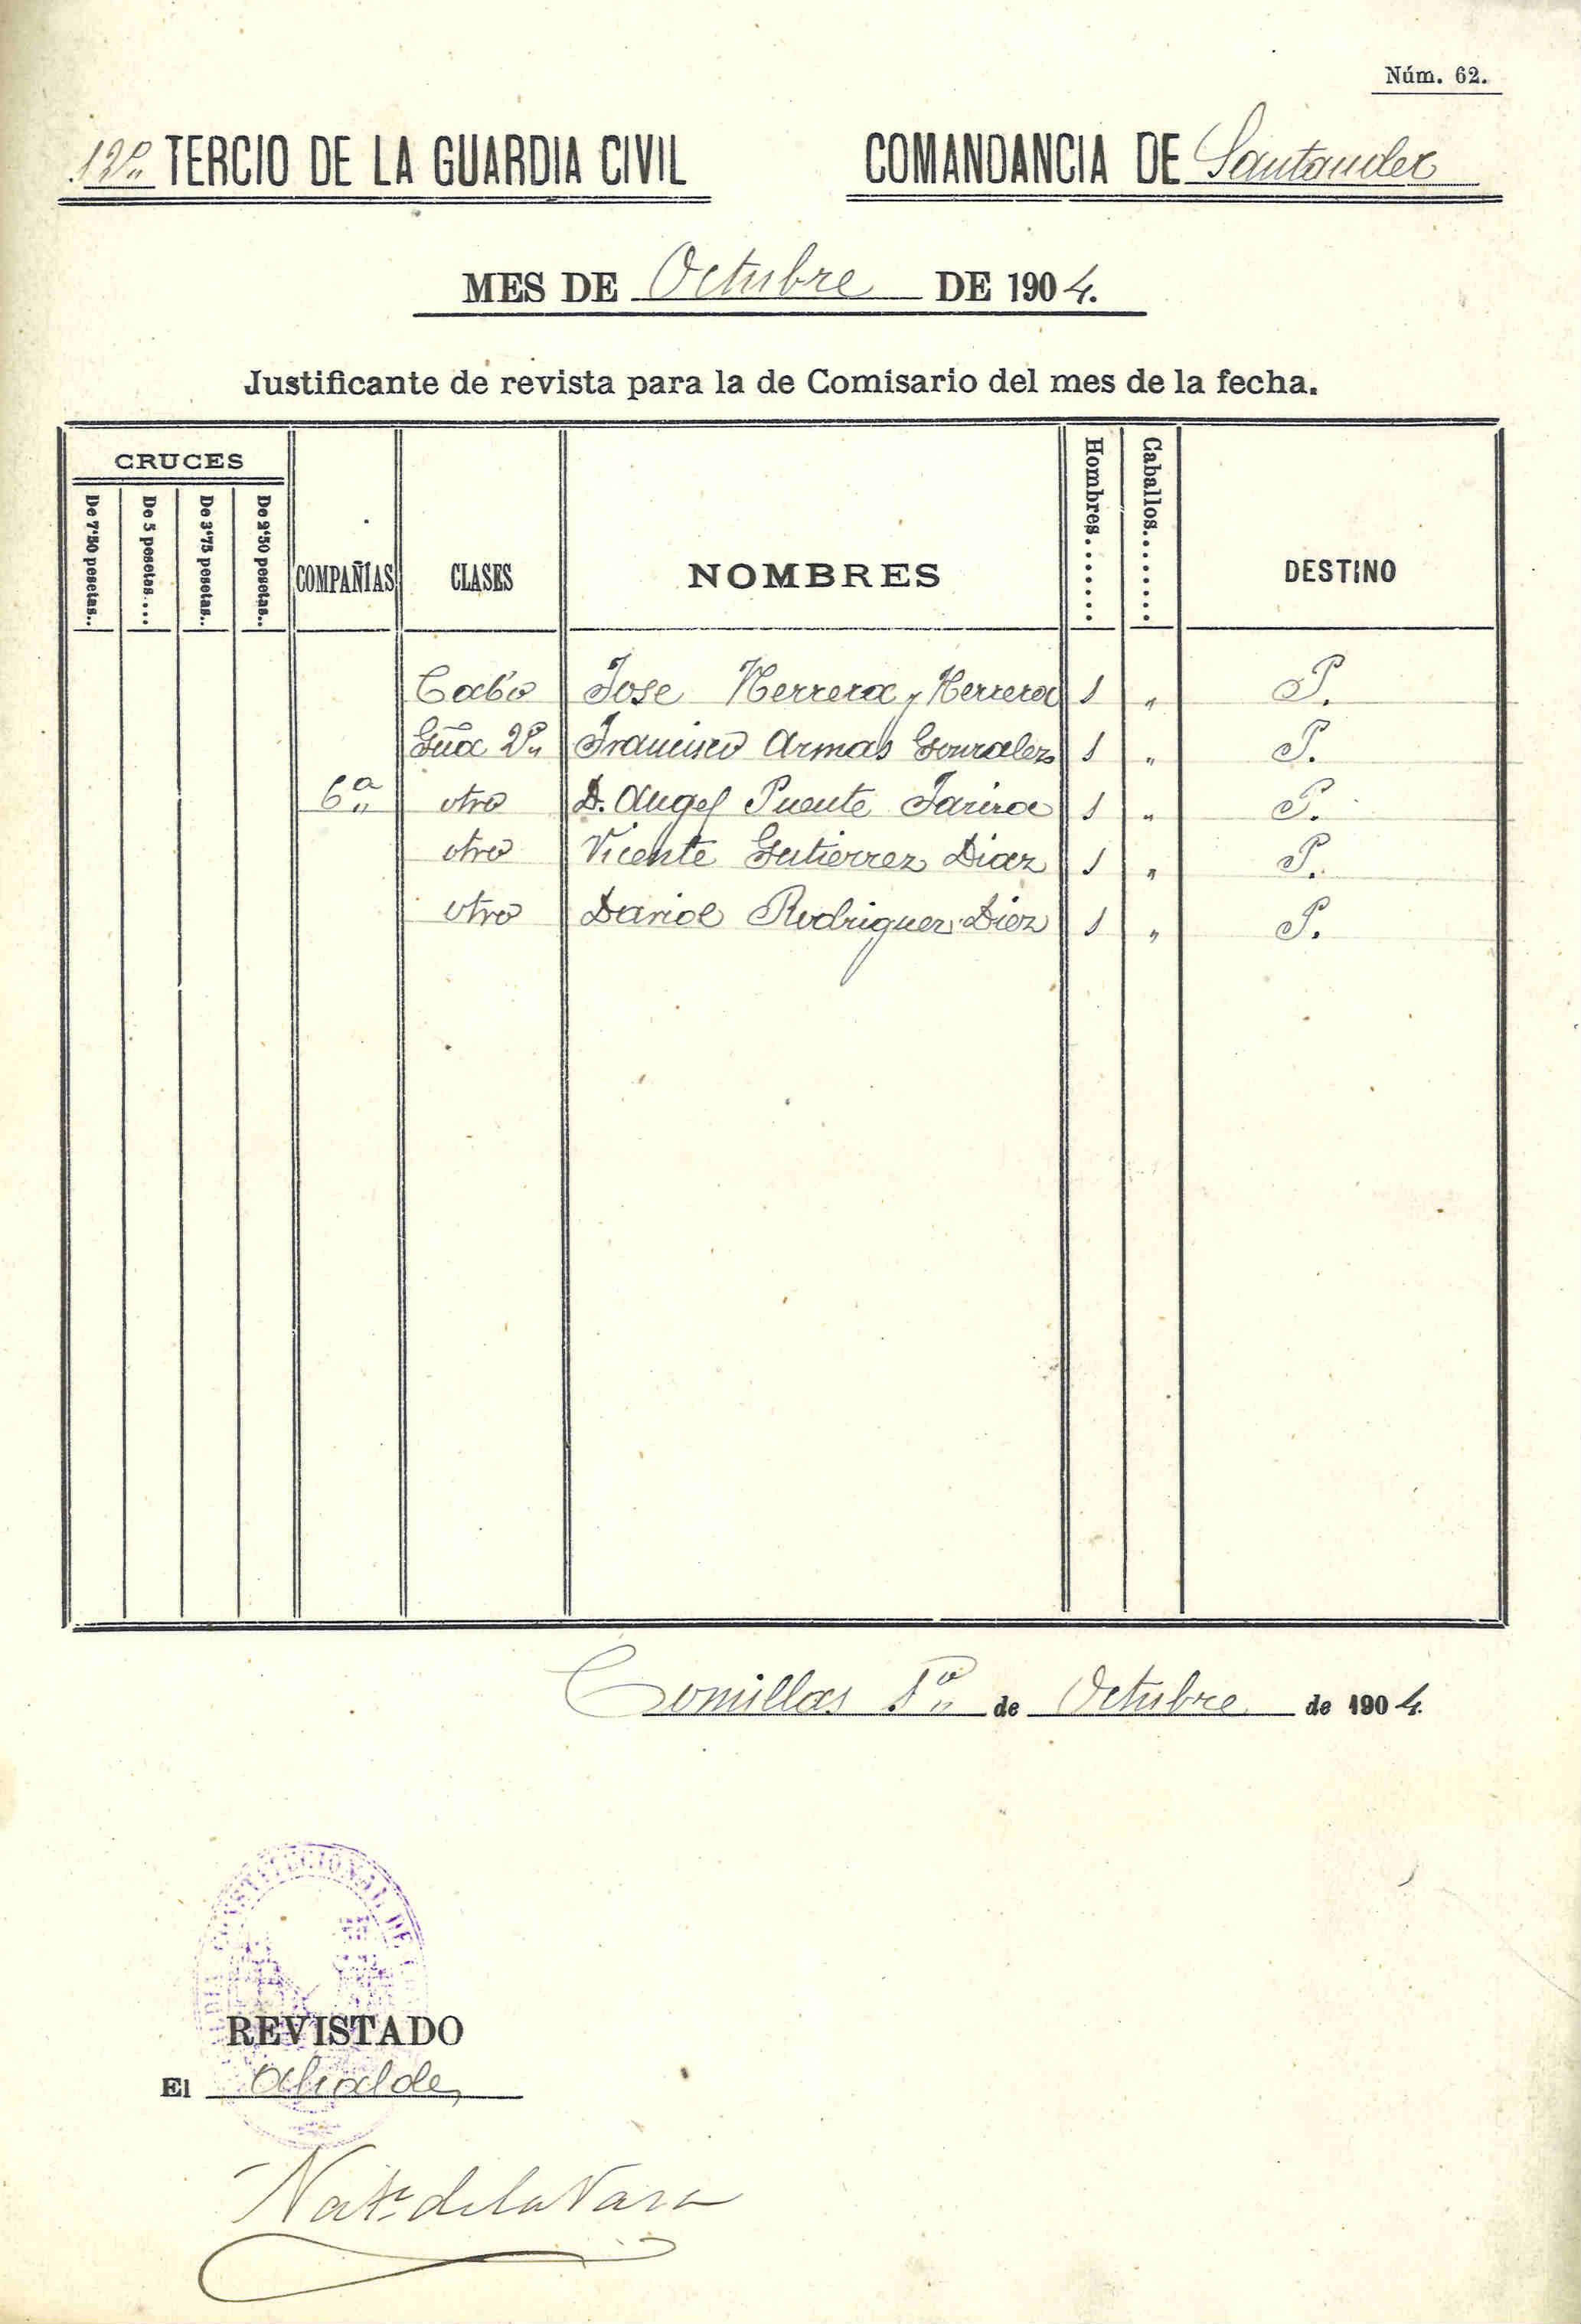 Núm. 62.
12º TERCIO DE LA GUARDIA CIVIL COMANDANCIA DE Santander
MES DE Octubre DE 1904.
Justificante de revista para la de Comisario del mes de la fecha.
CRUCES
De 7'50 pesetas..
De 5 pesetas....
De 3'75 pesetas..
De 2'50 pesetas..
COMPAÑIAS
CLASES
NOMBRES
Hombres......
Caballos.......
DESTINO
Cabo Jose Herrera y Herrera 1 " P.
Gũa 2º Francisco Armas Gonzalez 1 " P.
6ª otro D. Angel Puente 1 " P.
otro Vicente Gutierrez Diaz 1 " P.
otro Rodriguez Diez 1 " P.
Comillas 1º de Octubre de 1904.
CONSTITUCIONAL DE
REVISTADO
El Alcalde,
de la Vara